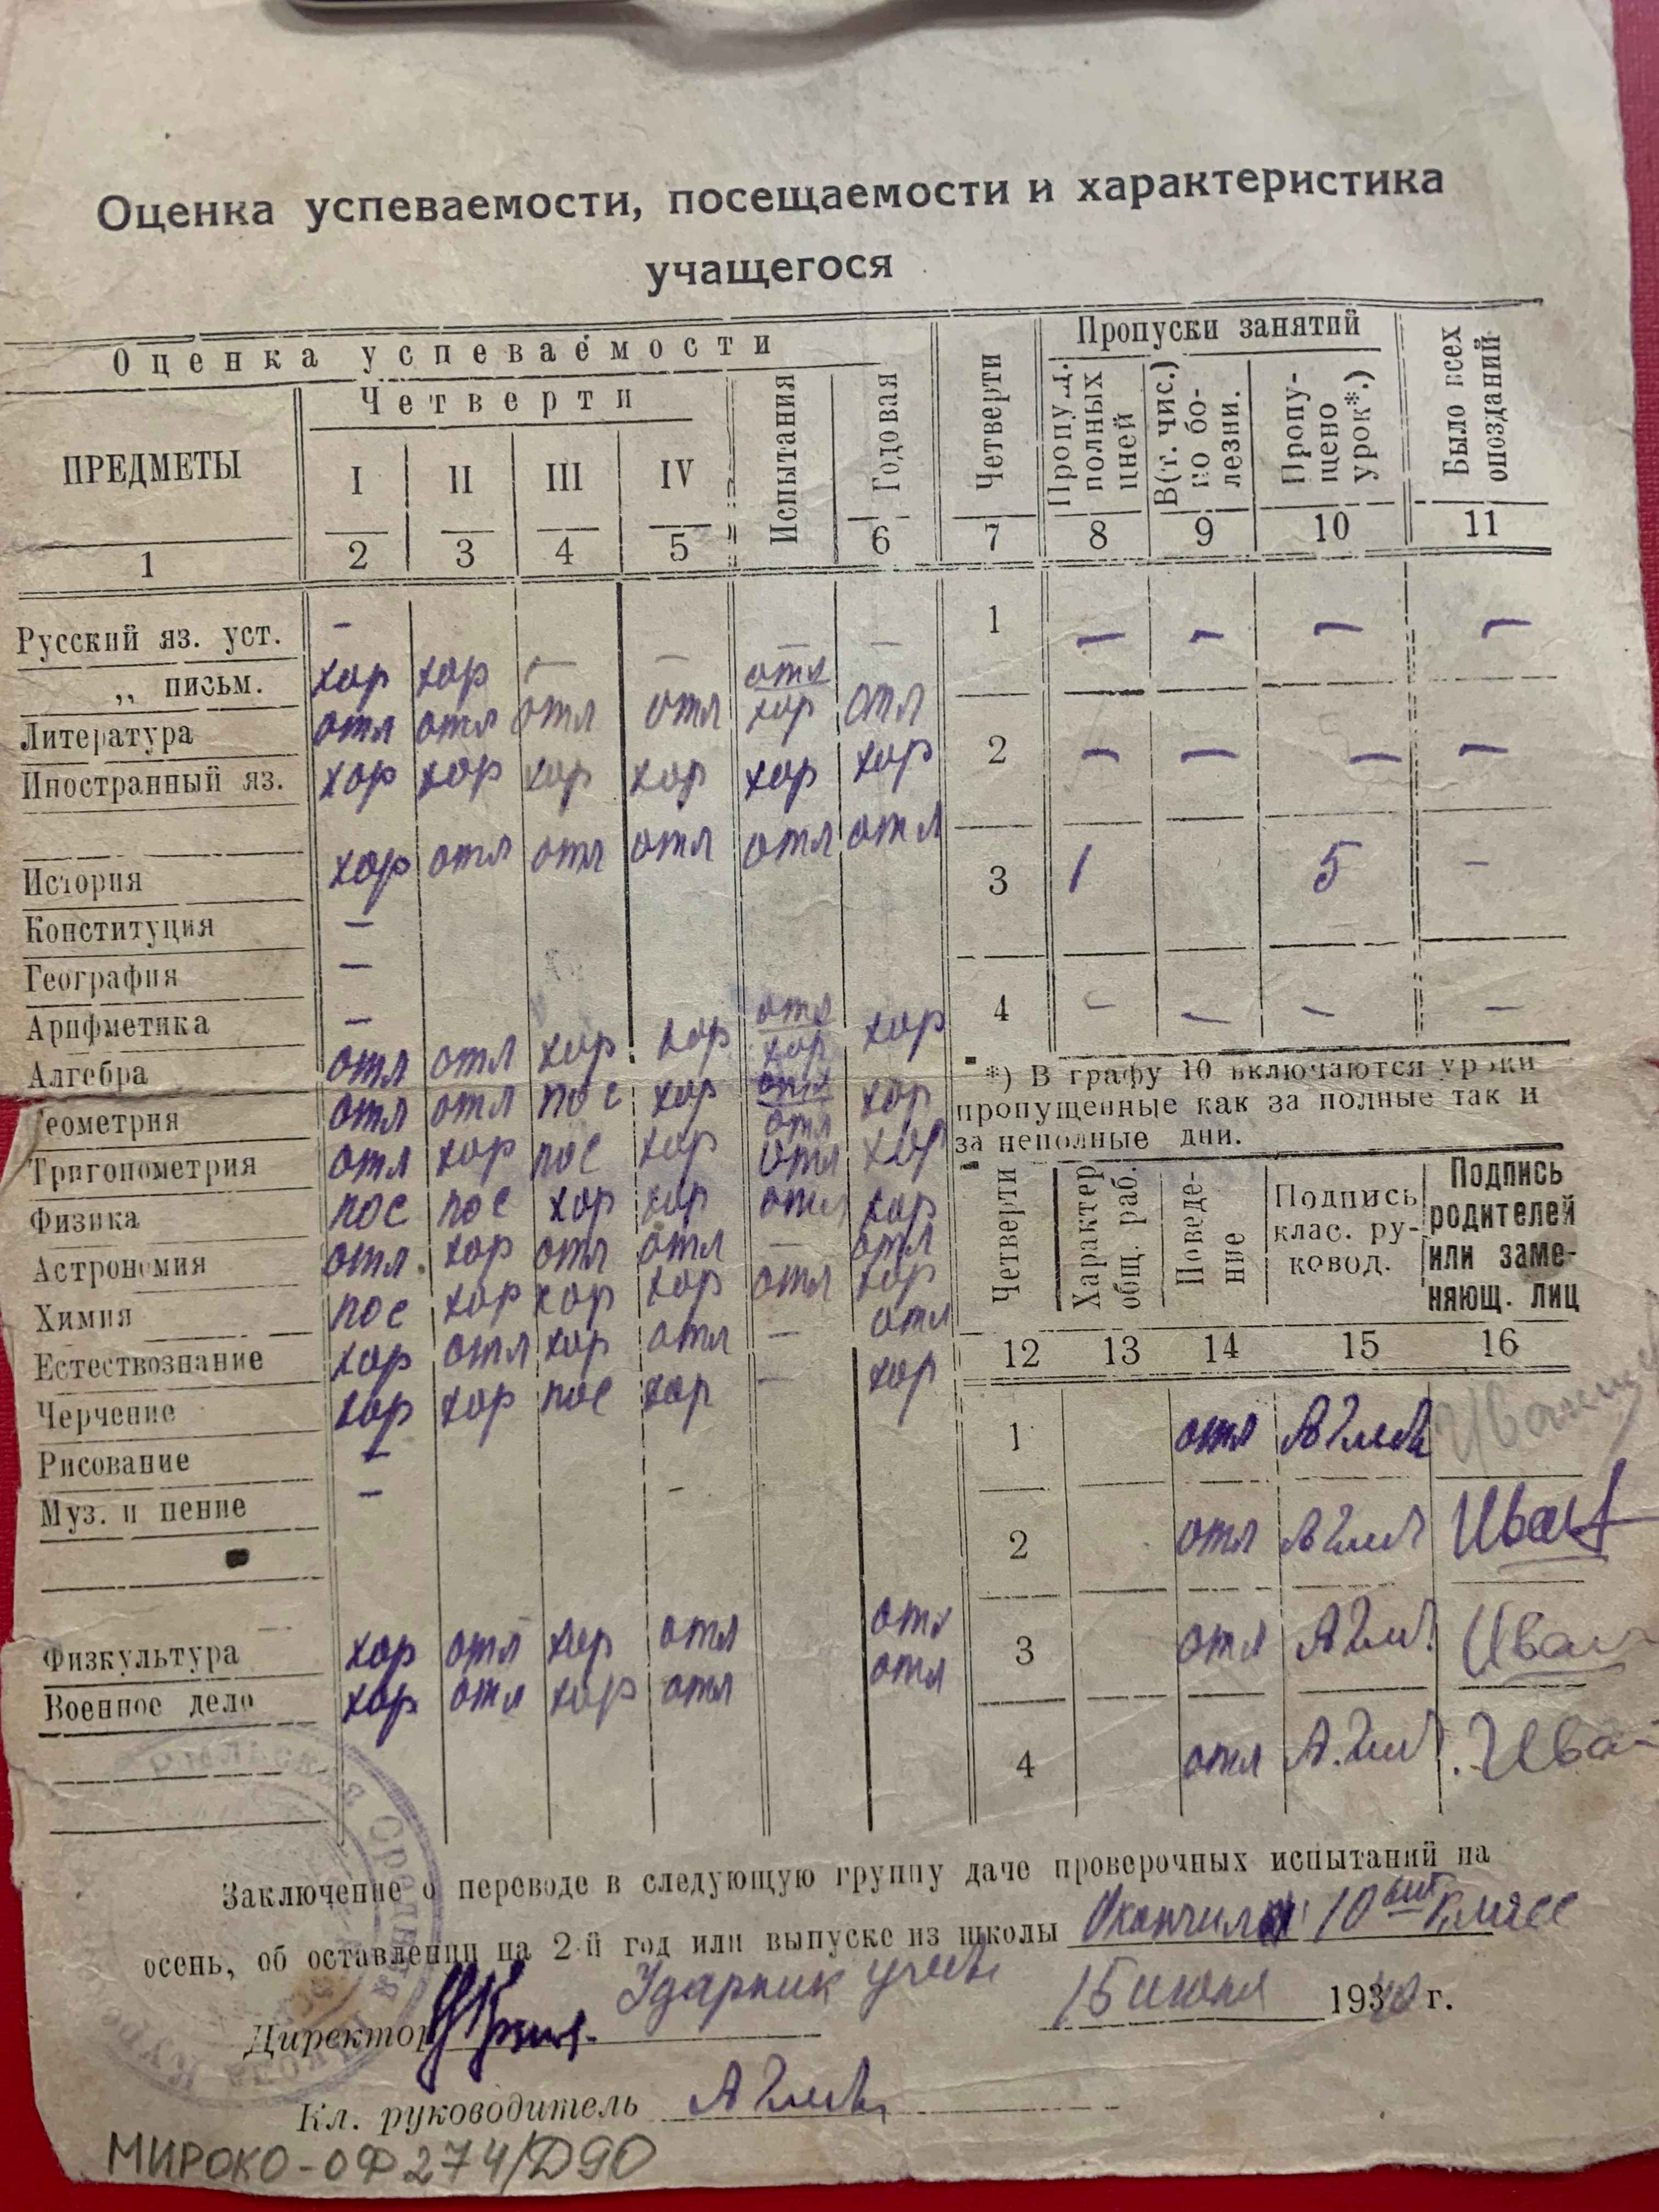 Оценка успеваемости, посещаемости и характеристика
учащегося
Оценка успеваемости
Четверти
ПРЕДМЕТЫ I II III IV Испытания Годовая
1 2 3 4 5 6
Русский яз. уст. —
„ письм. хор хор — — отл —
Литература отл отл отл отл хор отл
Иностранный яз. хор хор хор хор хор хор
История хор отл отл отл отл отл
Конституция —
География —
Арифметика —
Алгебра отл отл хор хор отл хор хор
Геометрия отл отл пос хор отл отл хор
Тригонометрия отл хор пос хор отл хор
Физика пос пос хор хор отл хор
Астрономия отл. хор отл отл — отл
Химия пос хор хор хор отл хор
Естествознание хор отл хор отл — отл
Черчение хор хор пос хор — хор
Рисование —
Муз. и пение — -
Физкультура хор отл хор отл отл
Военное дело хор отл хор отл отл
Четверти Пропуски занятий Было всех опозданий
Пропущ. полных дней В(т. чис.) по болезни. Пропущено урок*.)
7 8 9 10 11
1 — — — —
2 — — — —
3 1 5 —
4 — — — —
*) В графу 10 включаются уроки
пропущенные как за полные так и
за неполные дни.
Четверти Характер общ. раб. Поведение Подпись клас. руковод. Подпись родителей или заменяющ. лиц
12 13 14 15 16
1 отл
2 отл
3 отл
4 отл
Заключение о переводе в следующую группу даче проверочных испытаний на
осень, об оставлении на 2-й год или выпуске из школы Окончила 10 класс
Ударник учебы 15 июня 1940 г.
Директор
Кл. руководитель
МИРОКО-ОФ 274/Д90